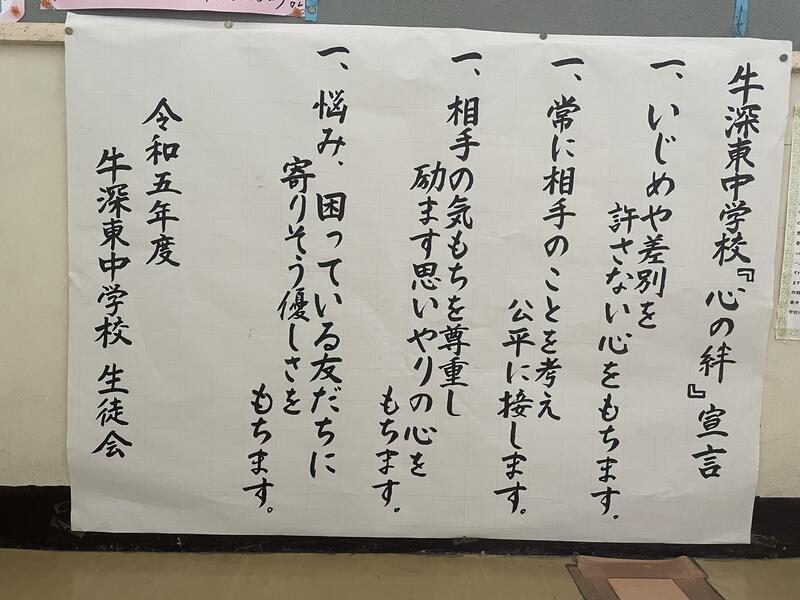 牛深東中学校『心の絆』宣言
一、いじめや差別を
許さない心をもちます。
一、常に相手のことを考え
公平に接します。
一、相手の気もちを尊重し
励ます思いやりの心を
もちます。
一、悩み、困っている友だちに
寄りそう優しさを
もちます。
令和五年度
牛深東中学校 生徒会